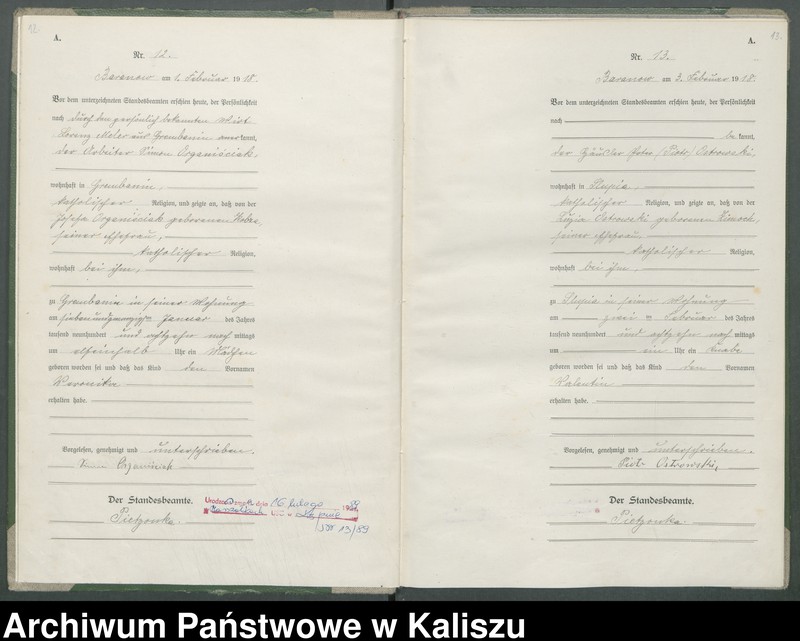 12.
A.
Nr. 12.
Baranow am 1. Februar 1918.
Vor dem unterzeichneten Standesbeamten erschien heute, der Persönlichkeit
nach durch den persönlich bekannten Wirt
Lorenz Meler aus Grembanin anerkannt,
der Arbeiter Simon Organisciak,
wohnhaft in Grembanin,
katholischer Religion, und zeigte an, daß von der
Josefa Organisciak geborenen
seiner Ehefrau,
katholischer Religion,
wohnhaft bei ihm,
zu Grembanin in seiner Wohnung
am siebenundzwanzigsten Januar des Jahres
tausend neunhundert und achtzehn nachmittags
um elfeinhalb Uhr ein Mädchen
geboren worden sei und daß das Kind den Vornamen
Veronika
erhalten habe.
Vorgelesen, genehmigt und unterschrieben.
Organisciak
Der Standesbeamte.
Pietzowka.
dnia 16 lutego 1989
w
13/89
13.
A.
Nr. 13.
Baranow am 3. Februar 1918.
Vor dem unterzeichneten Standesbeamten erschien heute, der Persönlichkeit
nach
be kannt,
der Häusler Peter (Piotr) Ostrowski,
wohnhaft in Slupia,
katholischer Religion, und zeigte an, daß von der
Luzia Ostrowski geborenen Zimoch,
seiner Ehefrau,
katholischer Religion,
wohnhaft bei ihm,
zu Slupia in seiner Wohnung
am zwei ten Februar des Jahres
tausend neunhundert und achtzehn nachmittags
um ein Uhr ein Knabe
geboren worden sei und daß das Kind den Vornamen
Valentin
erhalten habe.
Vorgelesen, genehmigt und unterschrieben.
Piotr Ostrowski,
Der Standesbeamte.
Pietzowka.
Archiwum Państwowe w Kaliszu